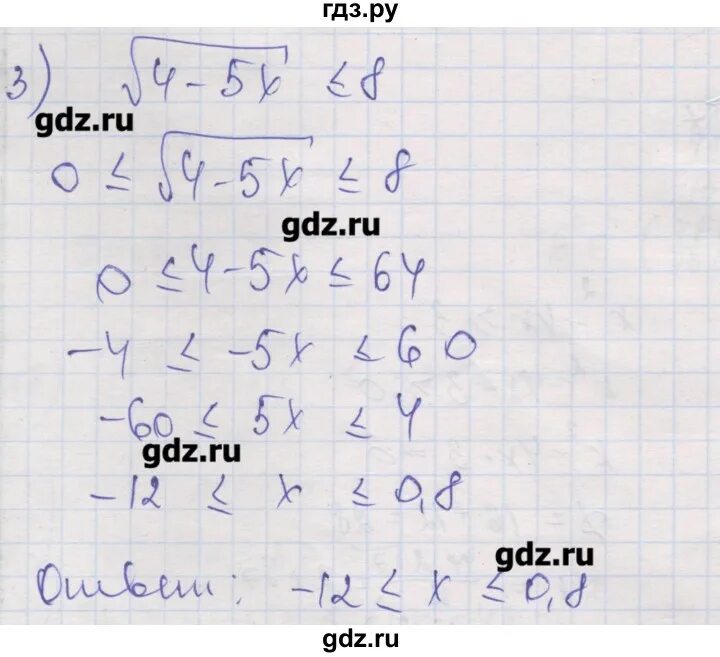 гдз.ру
3) √4-5x ≤ 8
gdz.ru
0 ≤ √4-5x ≤ 8
gdz.ru
0 ≤ 4-5x ≤ 64
-4 ≤ -5x ≤ 60
-60 ≤ 5x ≤ 4
gdz.ru
-12 ≤ x ≤ 0,8
gdz.ru
Ответ: -12 ≤ x ≤ 0,8
gdz.ru